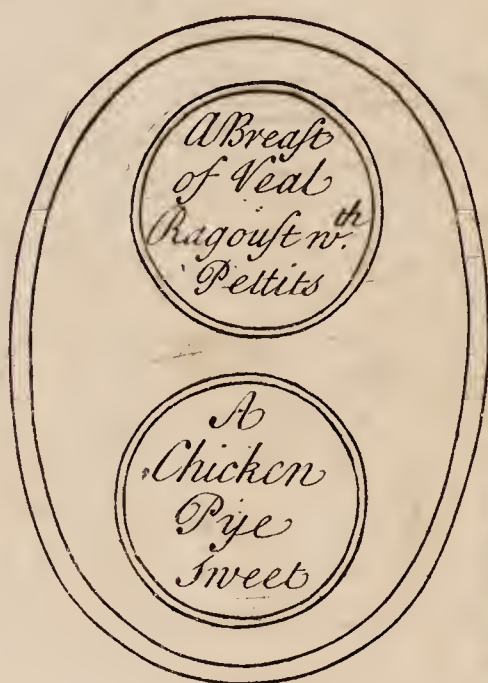 A Breaſt
of Veal
Ragouſt wth.
Pettits
A
Chicken
Pye
Sweet